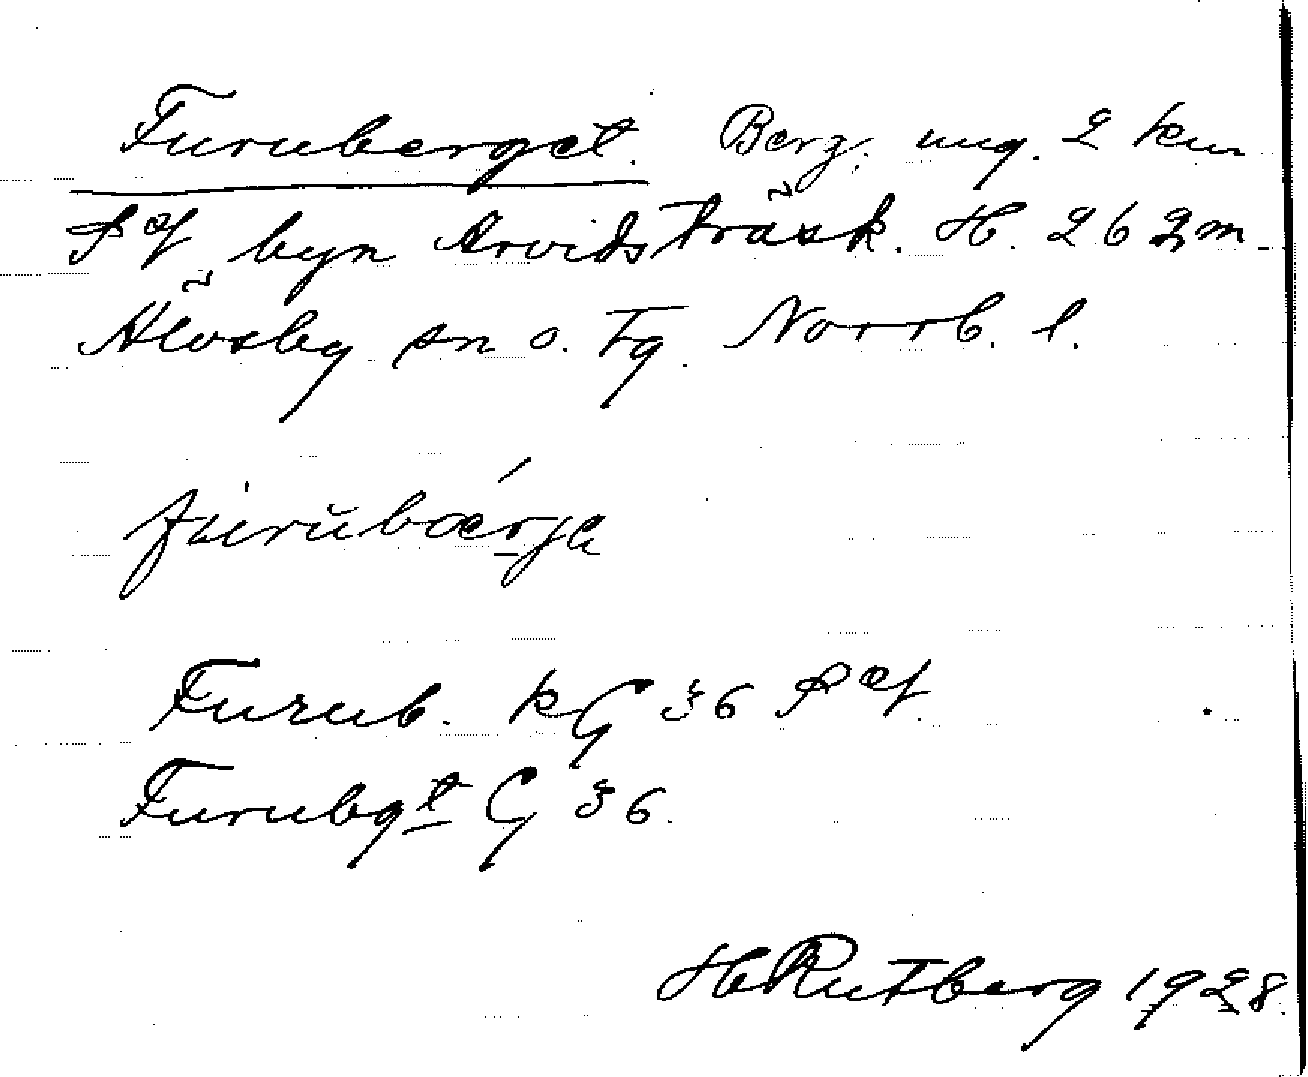 Furuberget. Berg. ung. 2 km
S of byn Arvidsträsk. H. 262 m.
Älvsby sn o. tg. Norrb. l.
fúrŭbǽrjɛ
Furub. kG 36 S of.
Furubgt G 36.
H Rutberg 1928.